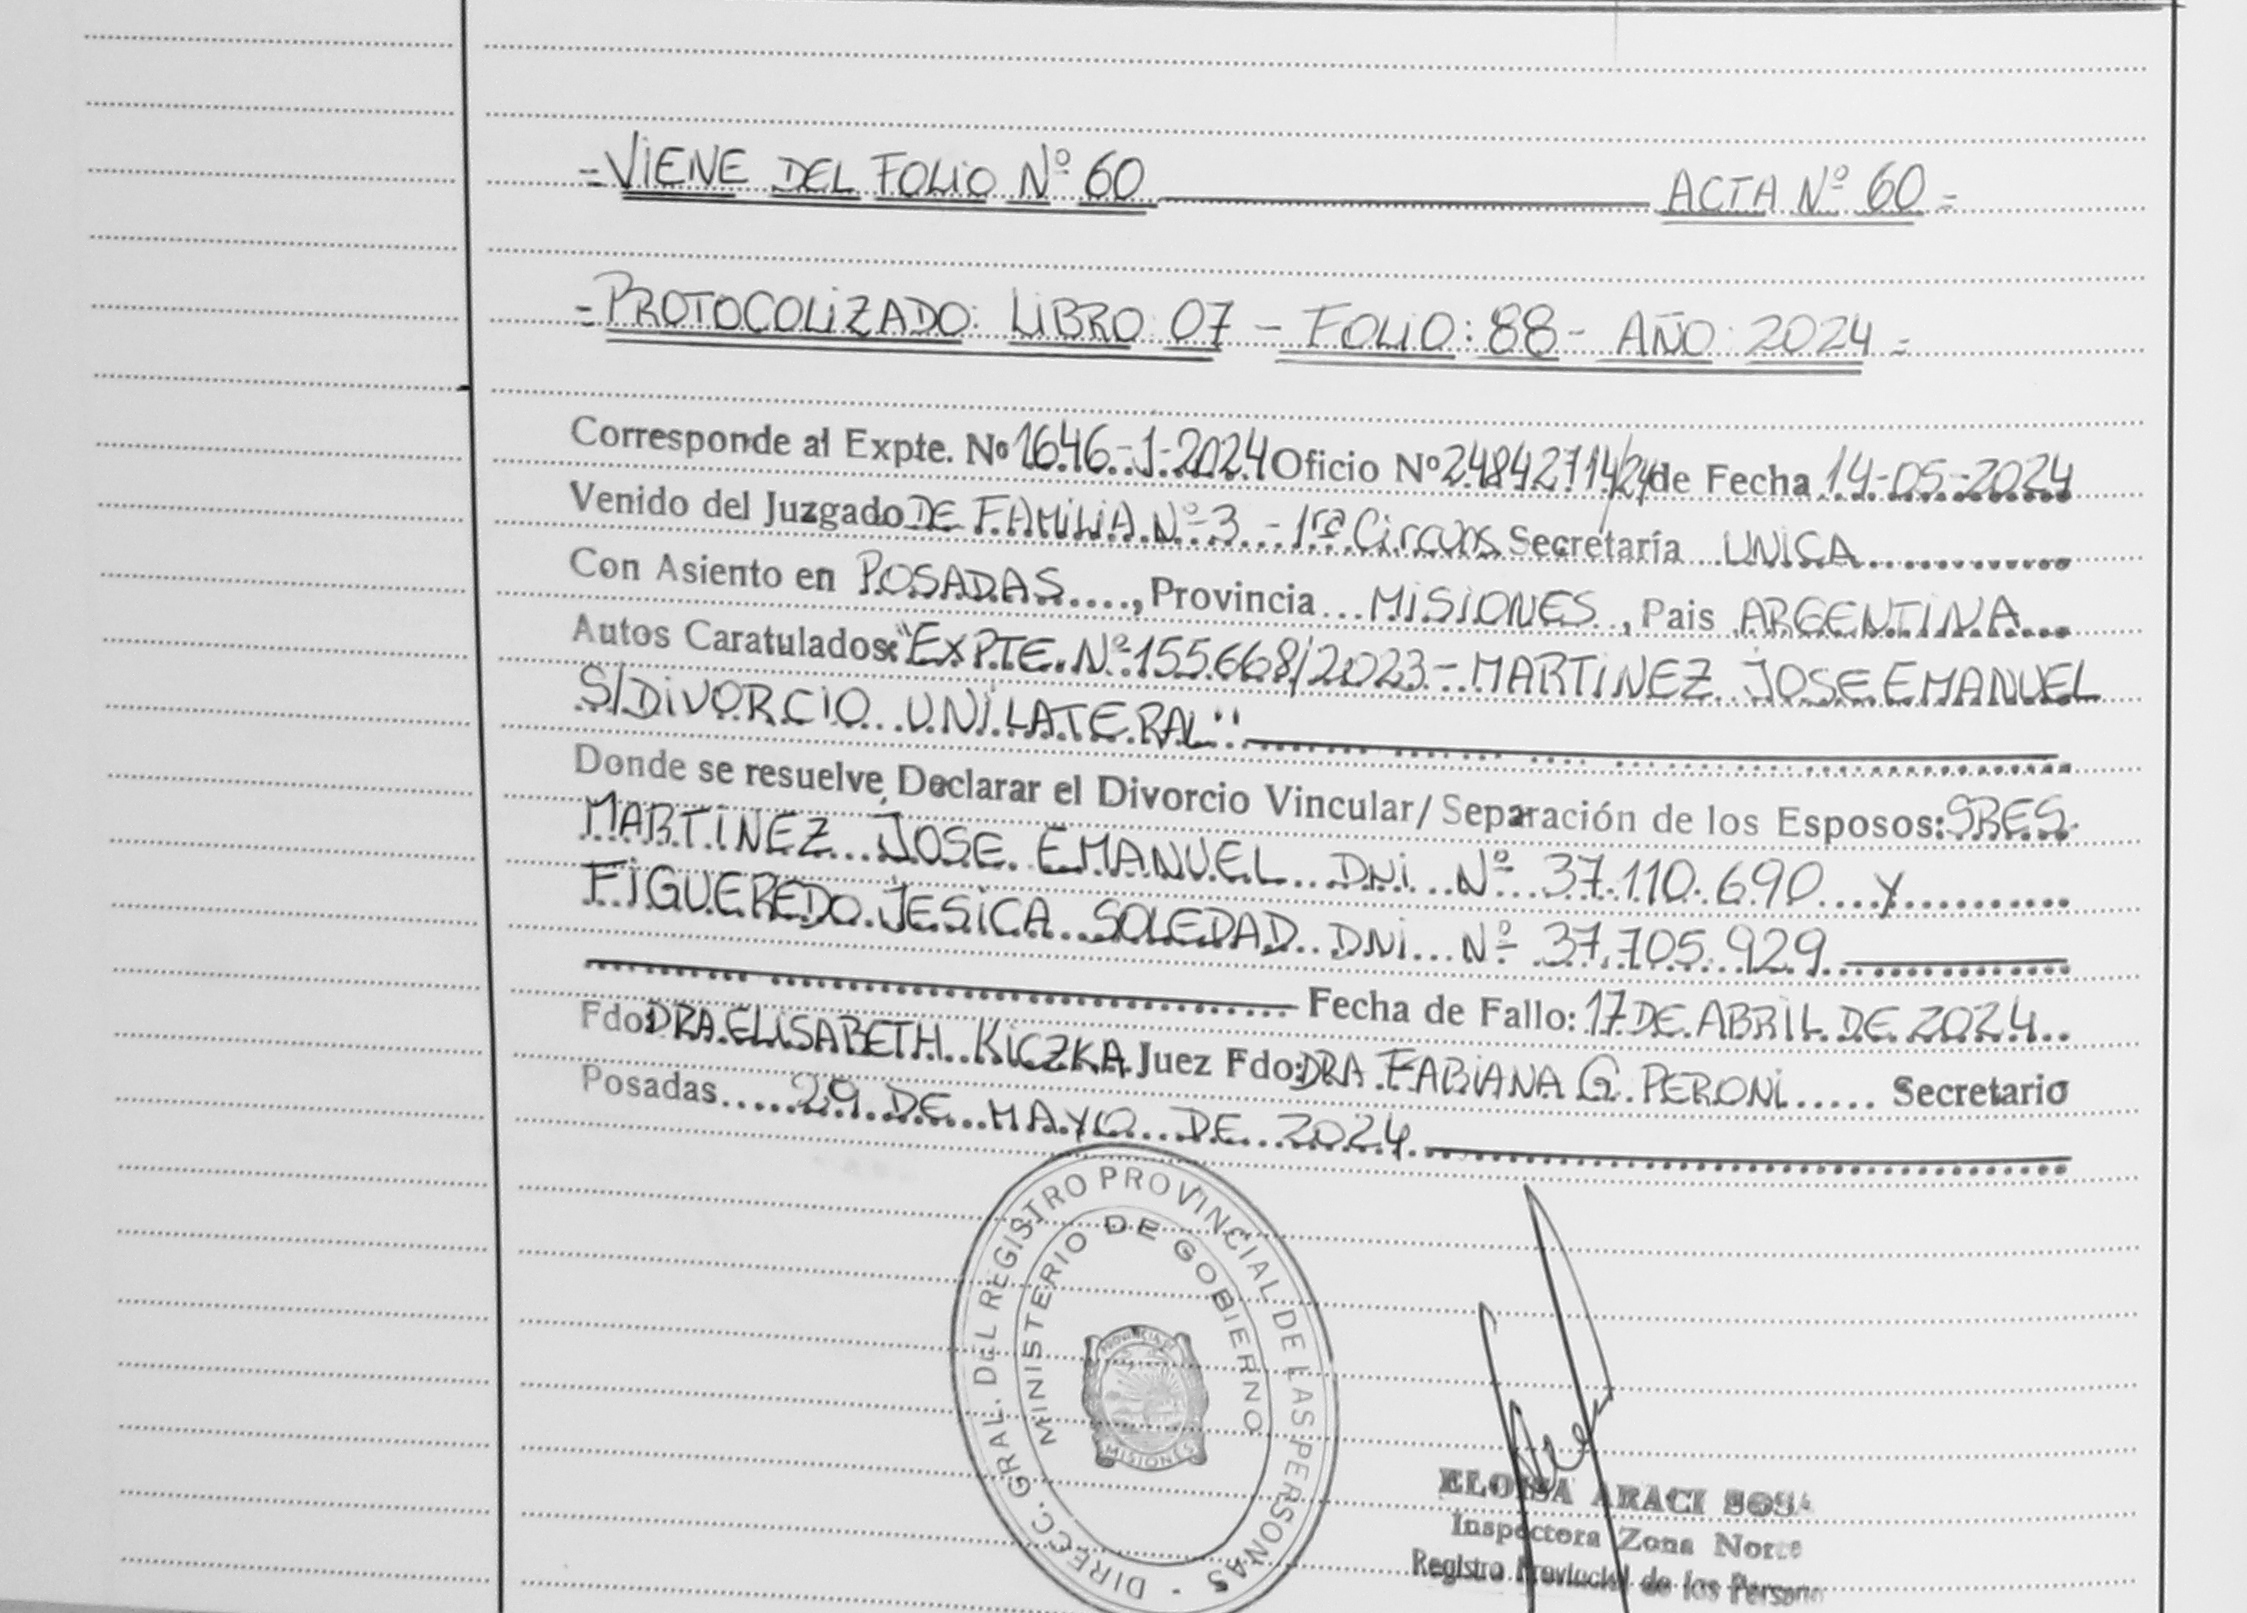 =VIENE DEL FOLIO Nº 60 ACTA Nº 60=
=PROTOCOLIZADO: LIBRO: 07 - FOLIO: 88 - AÑO: 2024=
Corresponde al Expte. Nº 1646-J-2024 Oficio Nº 24842714/24 de Fecha 14-05-2024
Venido del Juzgado DE FAMILIA Nº 3 - 1ra Circuns Secretaría UNICA
Con Asiento en POSADAS...., Provincia...MISIONES, Pais ARGENTINA...
Autos Caratulados: "EXPTE. Nº 155.668/2023 - MARTINEZ JOSE EMANUEL
S/DIVORCIO UNILATERAL"
Donde se resuelve Declarar el Divorcio Vincular/ Separación de los Esposos: SRES.
MARTINEZ JOSE EMANUEL DNI Nº 37.110.690 y
FIGUEREDO JESICA SOLEDAD DNI Nº 37.705.929
Fecha de Fallo: 17 DE ABRIL DE 2024
Fdo: DRA ELISABETH KICZKA Juez Fdo: DRA FABIANA G. PERONI..... Secretario
Posadas.....29 DE MAYO DE 2024
DIRECC. GRAL. DEL REGISTRO PROVINCIAL DE LAS PERSONAS -
MINISTERIO DE GOBIERNO
PROVINCIA DE
MISIONES
ELOISA ARACI SOSA
Inspectora Zona Norte
Registro Provincial de las Personas